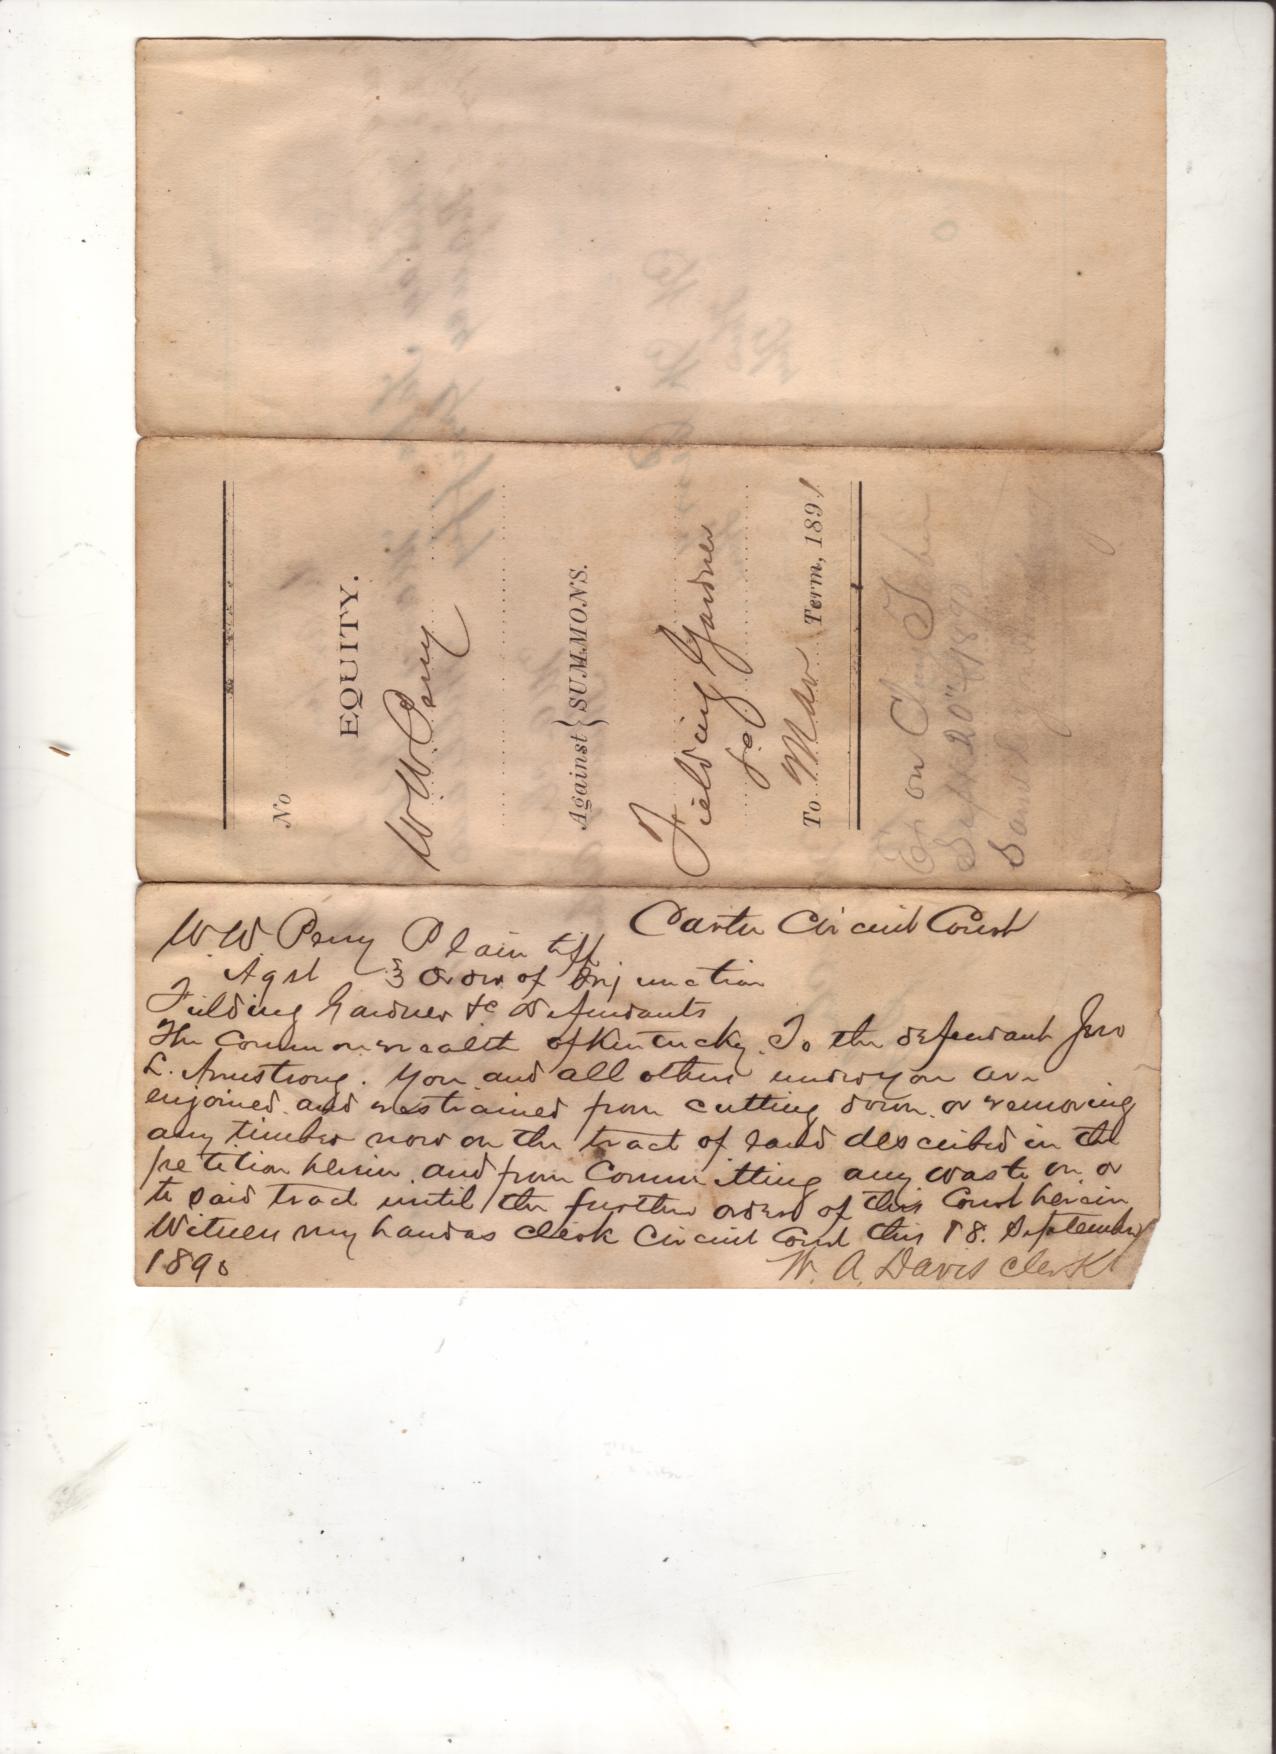 No
EQUITY.
W. W. Perry
Against } SUMMONS.
Fielding Gardner
&c
To Mar Term, 1891
Ex on
Sept 20th 1890
W. W Perry Plaintiff Carter Circuit Court
Agst } Order of Injunction
Fielding Gardner &c defendants
The Commonwealth of Kentucky. To the defendant Jno
L. Armstrong. You and all others under you are
enjoined and restrained from cutting down or removing
any timber now on the tract of land described in the
petition herein and from Committing any waste on or
to said tract until the further orders of this Court herein
Witness my hand as clerk Circuit Court this 18. September
1890
W. A. Davis Clerk